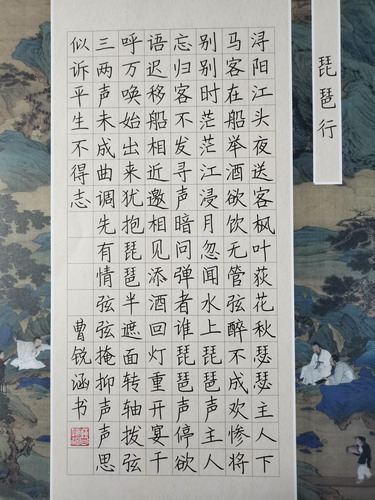 琵琶行
浔阳江头夜送客枫叶荻花秋瑟瑟主人下
马客在船举酒欲饮无管弦醉不成欢惨将
别别时茫茫江浸月忽闻水上琵琶声主人
忘归客不发寻声暗问弹者谁琵琶声停欲
语迟移船相近邀相见添酒回灯重开宴千
呼万唤始出来犹抱琵琶半遮面转轴拨弦
三两声未成曲调先有情弦弦掩抑声声思
似诉平生不得志
曹锐涵书